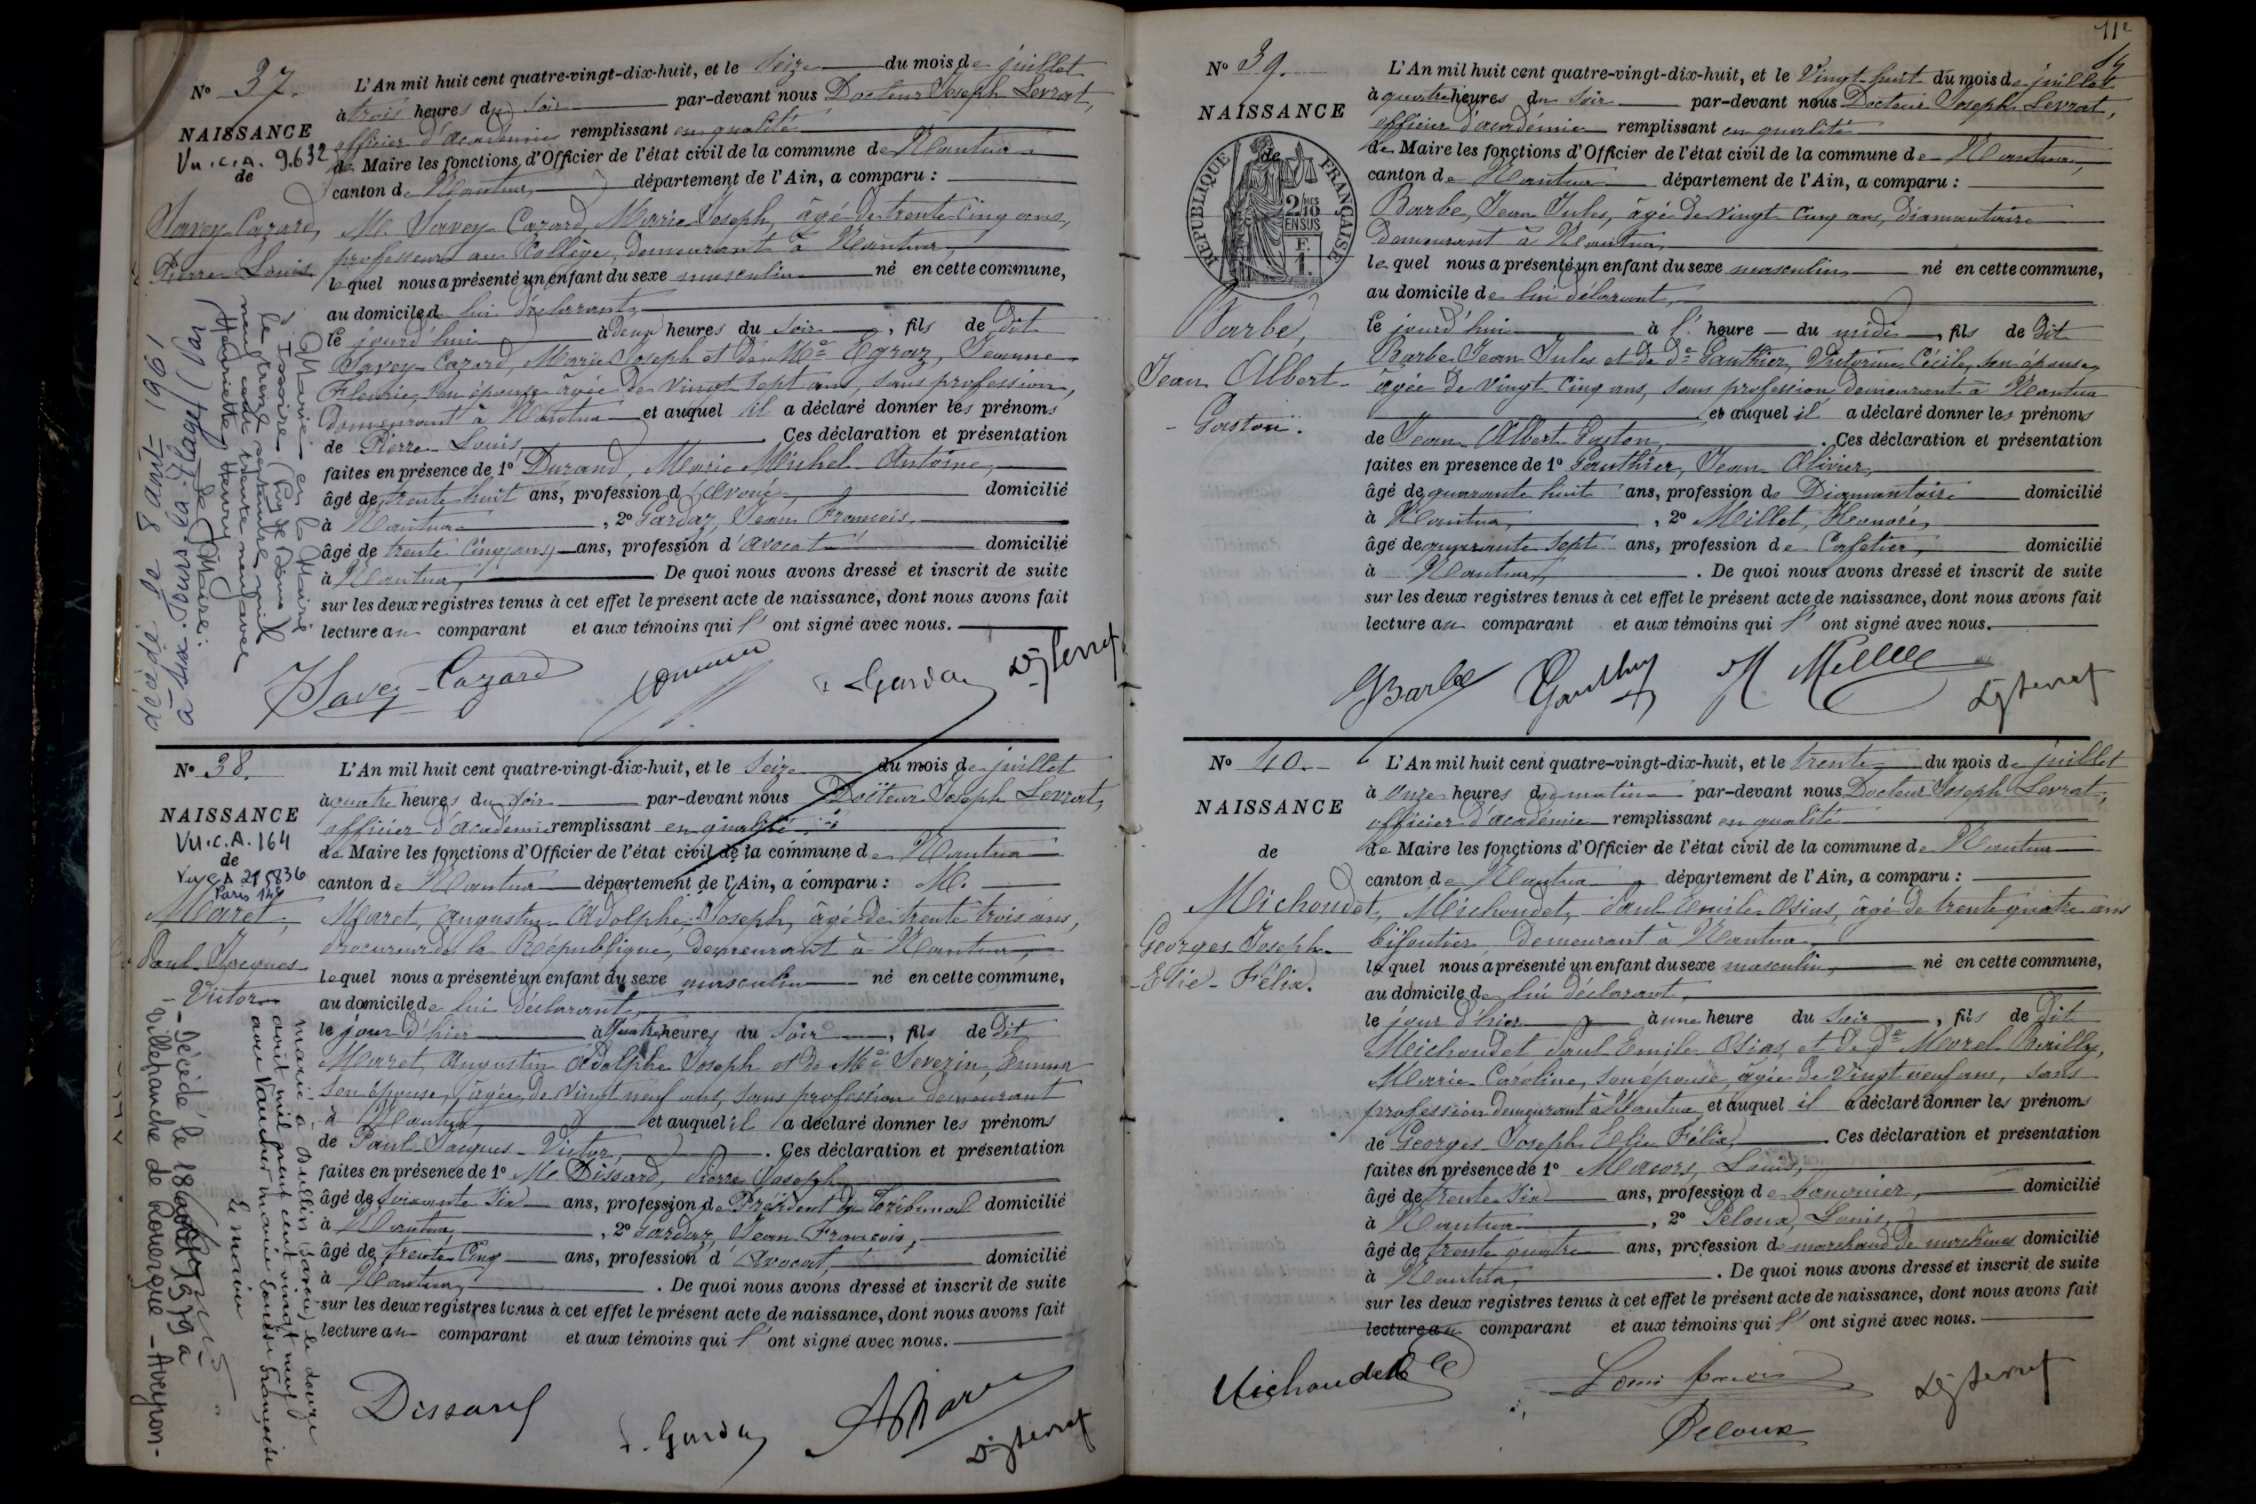 N° 37.
NAISSANCE
Vu.C.A. 9.632
de
Savey-Cazard,
Pierre-Louis
L'An mil huit cent quatre-vingt-dix-huit, et le Seize du mois de juillet
à trois heures du Soir par-devant nous Docteur Joseph Levrat,
officier d'académie remplissant en qualité
de Maire les fonctions d'Officier de l'état civil de la commune de Nantua
canton de Nantua, département de l'Ain, a comparu :
Mr Savey-Cazard, Marie Joseph, âgé de trente cinq ans,
professeur au Collège, demeurant à Nantua,
lequel nous a présenté un enfant du sexe masculin né en cette commune,
au domicile de lui déclarant,
le jourd'hui à deux heures du Soir, fils de dit
Savey-Cazard, Marie Joseph et de Me Egraz, Jeanne
Fleurie, son épouse âgée de vingt sept ans, sans profession,
demeurant à Nantua et auquel il a déclaré donner les prénoms
de Pierre-Louis. Ces déclaration et présentation
faites en présence de 1° Durand, Marie Michel Antoine,
âgé de trente huit ans, profession d'avoué domicilié
à Nantua, 2° Gardaz, Jean François,
âgé de trente cinq ans ans, profession d'avocat domicilié
à Nantua, De quoi nous avons dressé et inscrit de suite
sur les deux registres tenus à cet effet le présent acte de naissance, dont nous avons fait
lecture au comparant et aux témoins qui l'ont signé avec nous.
Marié en la Mairie
d'Issoire (Puy de Dôme)
le trente septembre mil
neuf cent trente neuf avec
Henriette Hervy
Le Maire.
décédé le 8 août 1961
à Aix-
JSavey-Cazard
F. Gardaz
Dr J Levrat
N° 38.
NAISSANCE
Vu.C.A. 164
de
Vu CA 215836
Paris 14e
Maret,
Paul-Jacques
-Victor-
L'An mil huit cent quatre-vingt-dix-huit, et le Seize du mois de juillet
à quatre heures du Soir par-devant nous Docteur Joseph Levrat,
officier d'académie remplissant en qualité
de Maire les fonctions d'Officier de l'état civil de la commune de Nantua
canton de Nantua département de l'Ain, a comparu : M.
Maret, Augustin Adolphe Joseph, âgé de trente trois ans,
Procureur de la République, demeurant à Nantua,
lequel nous a présenté un enfant du sexe masculin né en cette commune,
au domicile de lui déclarant,
le jour d'hier à quatre heures du Soir, fils de dit
Maret, Augustin Adolphe Joseph et de Me Severin, Emma
son épouse, âgée de vingt neuf ans, sans profession demeurant
à Nantua, et auquel il a déclaré donner les prénoms
de Paul-Jacques-Victor. Ces déclaration et présentation
faites en présence de 1° Mr Dissard, Pierre Joseph,
âgé de soixante six ans, profession de Président du Tribunal domicilié
à Nantua, 2° Gardaz, Jean François,
âgé de trente cinq ans, profession d'Avocat, domicilié
à Nantua,. De quoi nous avons dressé et inscrit de suite
sur les deux registres tenus à cet effet le présent acte de naissance, dont nous avons fait
lecture au comparant et aux témoins qui l'ont signé avec nous.
marié à Oullins le douze
août mil neuf cent vingt neuf
avec Vaucher Marie Louise Françoise
Le maire
- Décédé le 18 1979 à
Villefranche de Rouergue - Aveyron -
Dissard
F. Gardaz
AMaret
Dr J Levrat
N° 39.
NAISSANCE
de
RÉPUBLIQUE FRANÇAISE
2/10 EN SUS
F. 1.
Barbe,
Jean Albert-
- Gaston.
L'An mil huit cent quatre-vingt-dix-huit, et le Vingt huit du mois de juillet
à quatre heures du Soir par-devant nous Docteur Joseph Levrat,
officier d'académie remplissant en qualité
de Maire les fonctions d'Officier de l'état civil de la commune de Nantua,
canton de Nantua département de l'Ain, a comparu :
Barbe, Jean Jules, âgé de vingt cinq ans, diamantaire
demeurant à Nantua,
lequel nous a présenté un enfant du sexe masculin né en cette commune,
au domicile de lui déclarant,
le jourd'hui à l' heure du midi, fils de dit
Barbe Jean Jules et de de Gauthier, Victorine Cécile, son épouse,
âgée de vingt cinq ans, sans profession, demeurant à Nantua
et auquel il a déclaré donner les prénoms
de Jean Albert Gaston. Ces déclaration et présentation
faites en presence de 1° Gauthier, Jean Olivier,
âgé de quarante huit ans, profession de Diamantaire domicilié
à Nantua, 2° Millet, Honoré,
âgé de quarante sept ans, profession de Cafetier, domicilié
à Nantua,. De quoi nous avons dressé et inscrit de suite
sur les deux registres tenus à cet effet le présent acte de naissance, dont nous avons fait
lecture au comparant et aux témoins qui l'ont signé avec nous.
JBarbe
Gauthier
H Millet
Dr J Levrat
N° 40.
NAISSANCE
de
Michoudet,
Georges Joseph-
-Elie-Félix.
L'An mil huit cent quatre-vingt-dix-huit, et le trente du mois de juillet
à onze heures du matin par-devant nous Docteur Joseph Levrat,
officier d'académie remplissant en qualité
de Maire les fonctions d'Officier de l'état civil de la commune de Nantua
canton de Nantua, département de l'Ain, a comparu :
Michoudet, Paul Emile Osias, âgé de trente quatre ans
bijoutier demeurant à Nantua
lequel nous a présenté un enfant du sexe masculin, né en cette commune,
au domicile de lui déclarant,
le jour d'hier à une heure du Soir, fils de dit
Michoudet Paul Emile Osias, et de de Morel Birilly,
Marie-Caroline, son épouse, âgée de vingt neuf ans, sans
profession demeurant à Nantua et auquel il a déclaré donner les prénoms
de Georges Joseph Elie Félix. Ces déclaration et présentation
faites en présence de 1° Louis,
âgé de trente six ans, profession de domicilié
à Nantua, 2° Peloux, Louis,
âgé de trente quatre ans, profession de marchand de machines domicilié
à Nantua,. De quoi nous avons dressé et inscrit de suite
sur les deux registres tenus à cet effet le présent acte de naissance, dont nous avons fait
lecture au comparant et aux témoins qui l'ont signé avec nous.
Michoudet
Louis
Peloux
Dr J Levrat